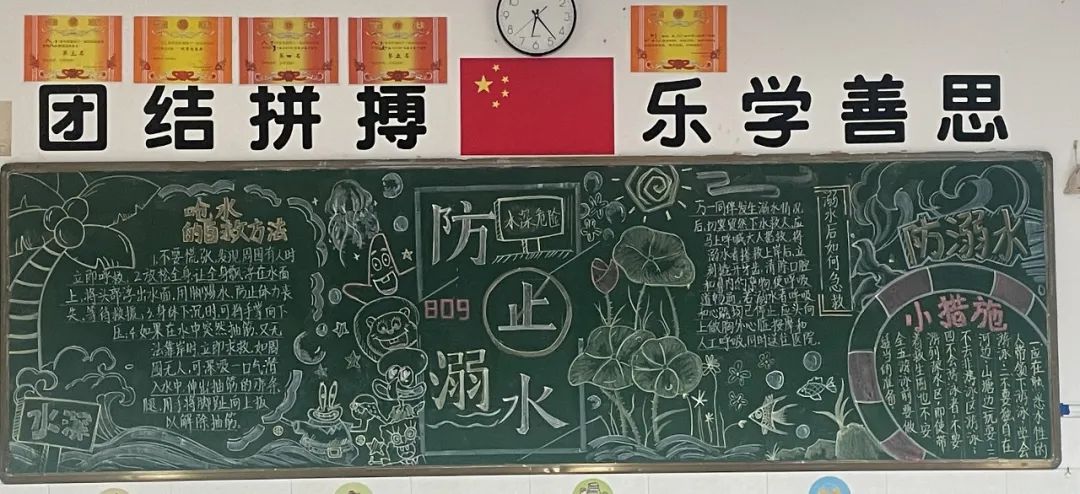 第三名
第四名
第五名
团结拼搏
乐学善思
呛水
的自救方法
1.不要慌张,发现周围有人时
立即呼救。2.放松全身,让全身飘浮在水面
上,将头部浮出水面,用脚踢水,防止体力丧
失,等待救援。3.身体下沉时,可将手掌向下
压。4.如果在水中突然抽筋,又无
法靠岸时,立即求救。如周
围无人,可深吸一口气潜
入水中,伸出抽筋的那条
腿,用手将脚趾向上扳
以解除抽筋。
水深
防
止
溺
水
水深危险
809
溺水后如何急救
万一同伴发生溺水情况
后,切莫贸然下水救人,应
马上呼喊大人营救,将
溺水者拯救上岸后,立
刻
消除口腔
和鼻
呼吸
道畅通,若溺水者呼吸
和心跳已停止,应头向
上做胸外心脏按摩和
人工呼吸,同时送往医院。
防溺水
小措施
一应在熟悉水性的
人带领下游泳,学会
游泳;二不要独自在
河边、山塘边玩耍;三
不去非游泳区游泳;
四不会游泳者,不要
游到深水区,即使带
着救生圈也不安
全;五游泳前要做
适当的准备